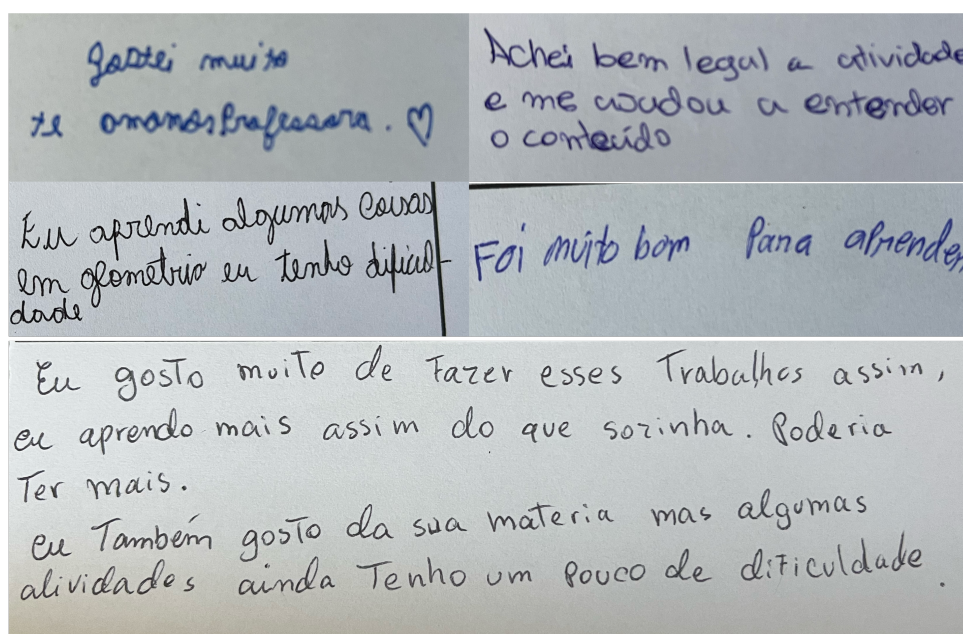 Gostei muito
te amamos Professora. ♡
Achei bem legal a atividade
e me ajudou a entender
o conteúdo
Eu aprendi algumas coisas
em geometria eu tenho dificul-
dade
Foi muito bom Para aprender
Eu gosto muito de fazer esses Trabalhos assim,
eu aprendo mais assim do que sozinha. Poderia
Ter mais.
eu Também gosto da sua materia mas algumas
atividades ainda Tenho um Pouco de dificuldade.